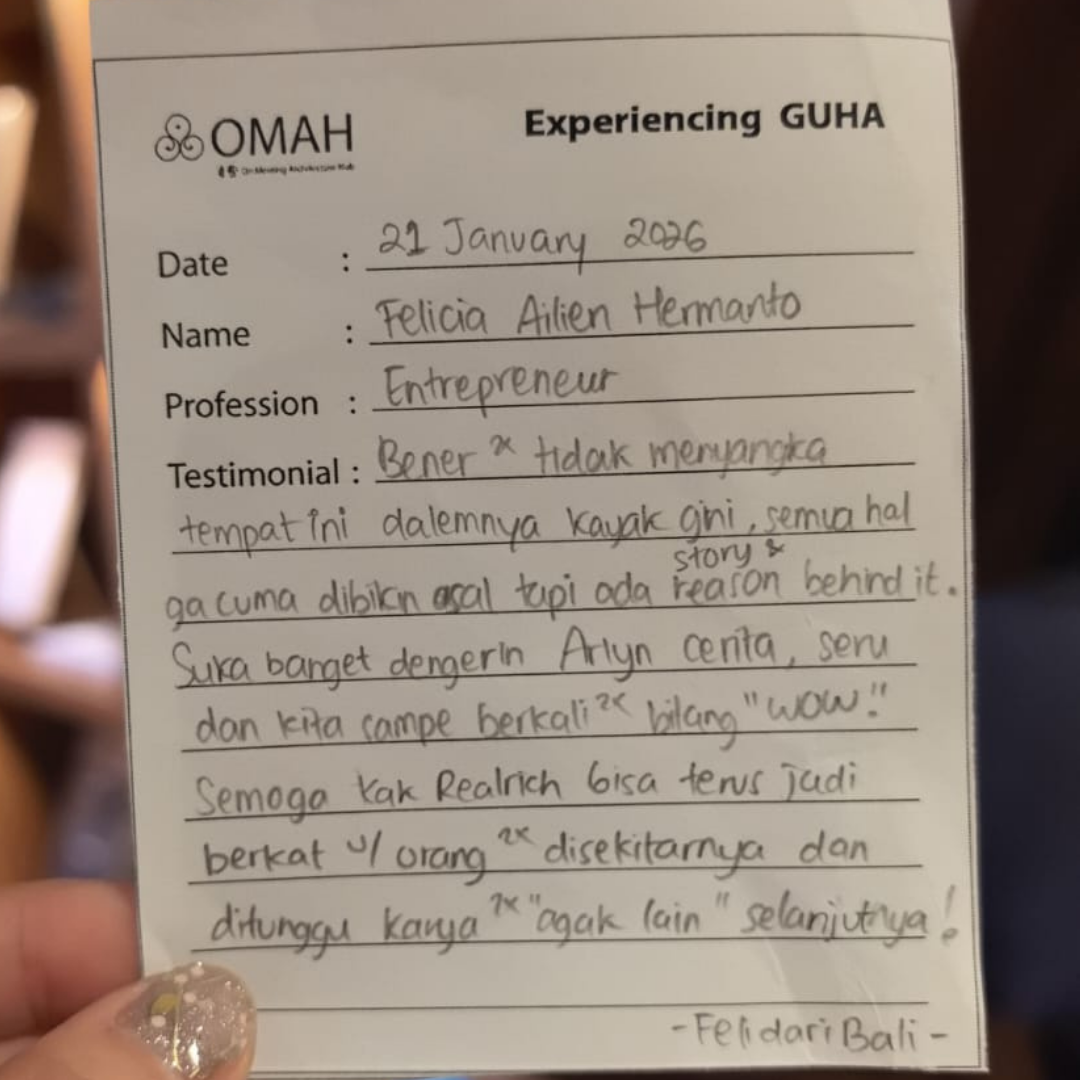 OMAH
Experiencing GUHA
Date : 21 January 2026
Name : Felicia Ailien Hermanto
Profession : Entrepreneur
Testimonial : Bener 2x tidak menyangka
tempat ini dalemnya kayak gini, semua hal
story &
ga cuma dibikin asal tapi ada reason behind it.
Suka banget dengerin Arlyn cerita, seru
dan kita sampe berkali 2x bilang "wow!"
Semoga kak Realrich bisa terus jadi
berkat u/ orang 2x disekitarnya dan
ditunggu karya 2x "agak lain" selanjutnya!
- Feli dari Bali -